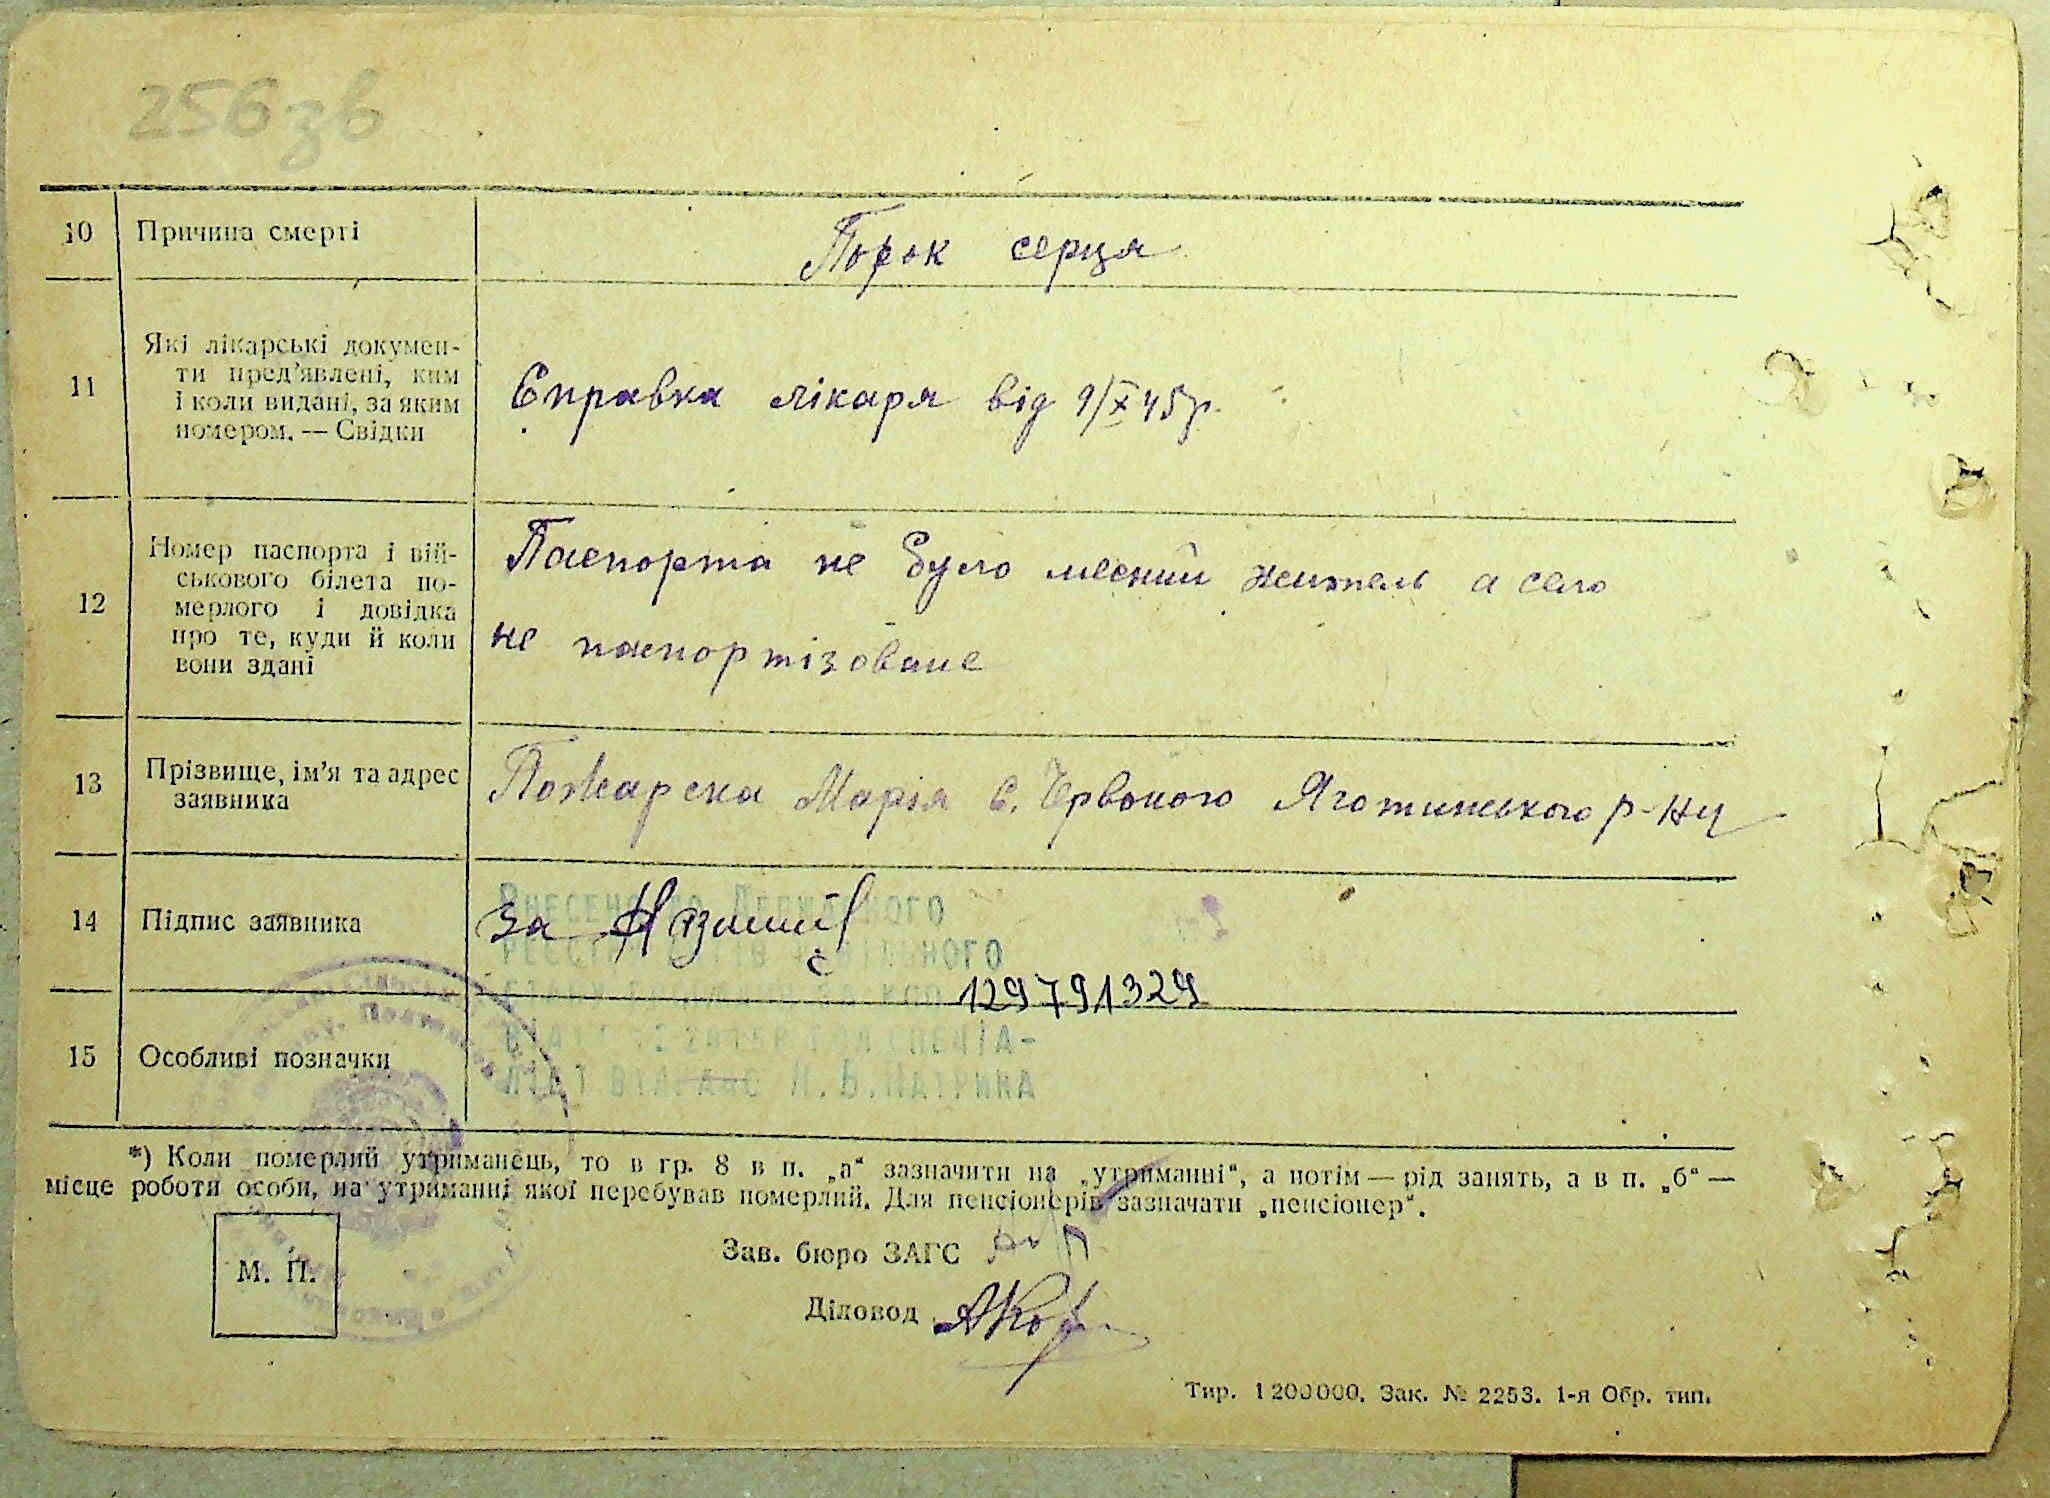 256 зв
10 Причина смерті Порок серця
11 Які лікарські докумен-
ти пред'явлені, ким
і коли видані, за яким
номером. — Свідки
Справка лікаря від 9/X 45р.
12 Номер паспорта і вій-
ськового білета по-
мерлого і довідка
про те, куди й коли
вони здані
Паспорта не було месний житель а село
не паспортізоване
13 Прізвище, ім'я та адрес
заявника
Пожарска Марія с. Червоного Яготинського р-ну
14 Підпис заявника за
Внесено до Державного
129791329
15 Особливі позначки
*) Коли померлий утриманець, то в гр. 8 в п. „а“ зазначити на „утриманні“, а потім — рід занять, а в п. „б“ —
місце роботи особи, на утриманні якої перебував померлий. Для пенсіонерів зазначати „пенсіонер“.
М. П.
Зав. бюро ЗАГС
Діловод
Тир. 1200000. Зак. № 2253. 1-я Обр. тип.